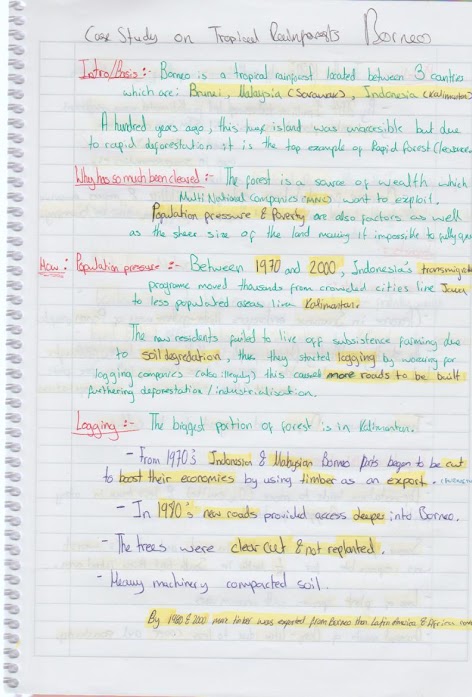 Case Study on Tropical Rainforests Borneo
Intro/Basis :- Borneo is a tropical rainforest located between 3 countries
which are: Brunei, Malaysia (Sarawak), Indonesia (Kalimantan)
A hundred years ago, this huge island was unaccesible but due
to rapid deforestation it is the top example of Rapid forest Clearance
Why has so much been cleared :- The forest is a source of wealth which
Multi National Companies (MNC) want to exploit.
Population pressure & Poverty are also factors as well
as the sheer size of the land making it impossible to fully
How: Population pressure :- Between 1970 and 2000, Indonesia's transmigrat
programe moved thousands from crowded cities like Java
to less populated areas like Kalimantan.
The new residents failed to live off subsistence farming due
to soil degredation, thus they started logging by working for
logging companies (also illegally) this caused more roads to be built
furthering deforestation / industrialisation.
Logging :- The biggest portion of forest is in Kalimantan.
- From 1970's Indonesian & Malaysian Borneo Parts began to be cut
to boost their economies by using timber as an export.
- In 1980's new roads provided access deeper into Borneo.
- The trees were clear cut & not replanted.
- Heavy machinery compacted soil.
By 1980 & 2000 more timber was exported from Borneo than Latin America & Africa com